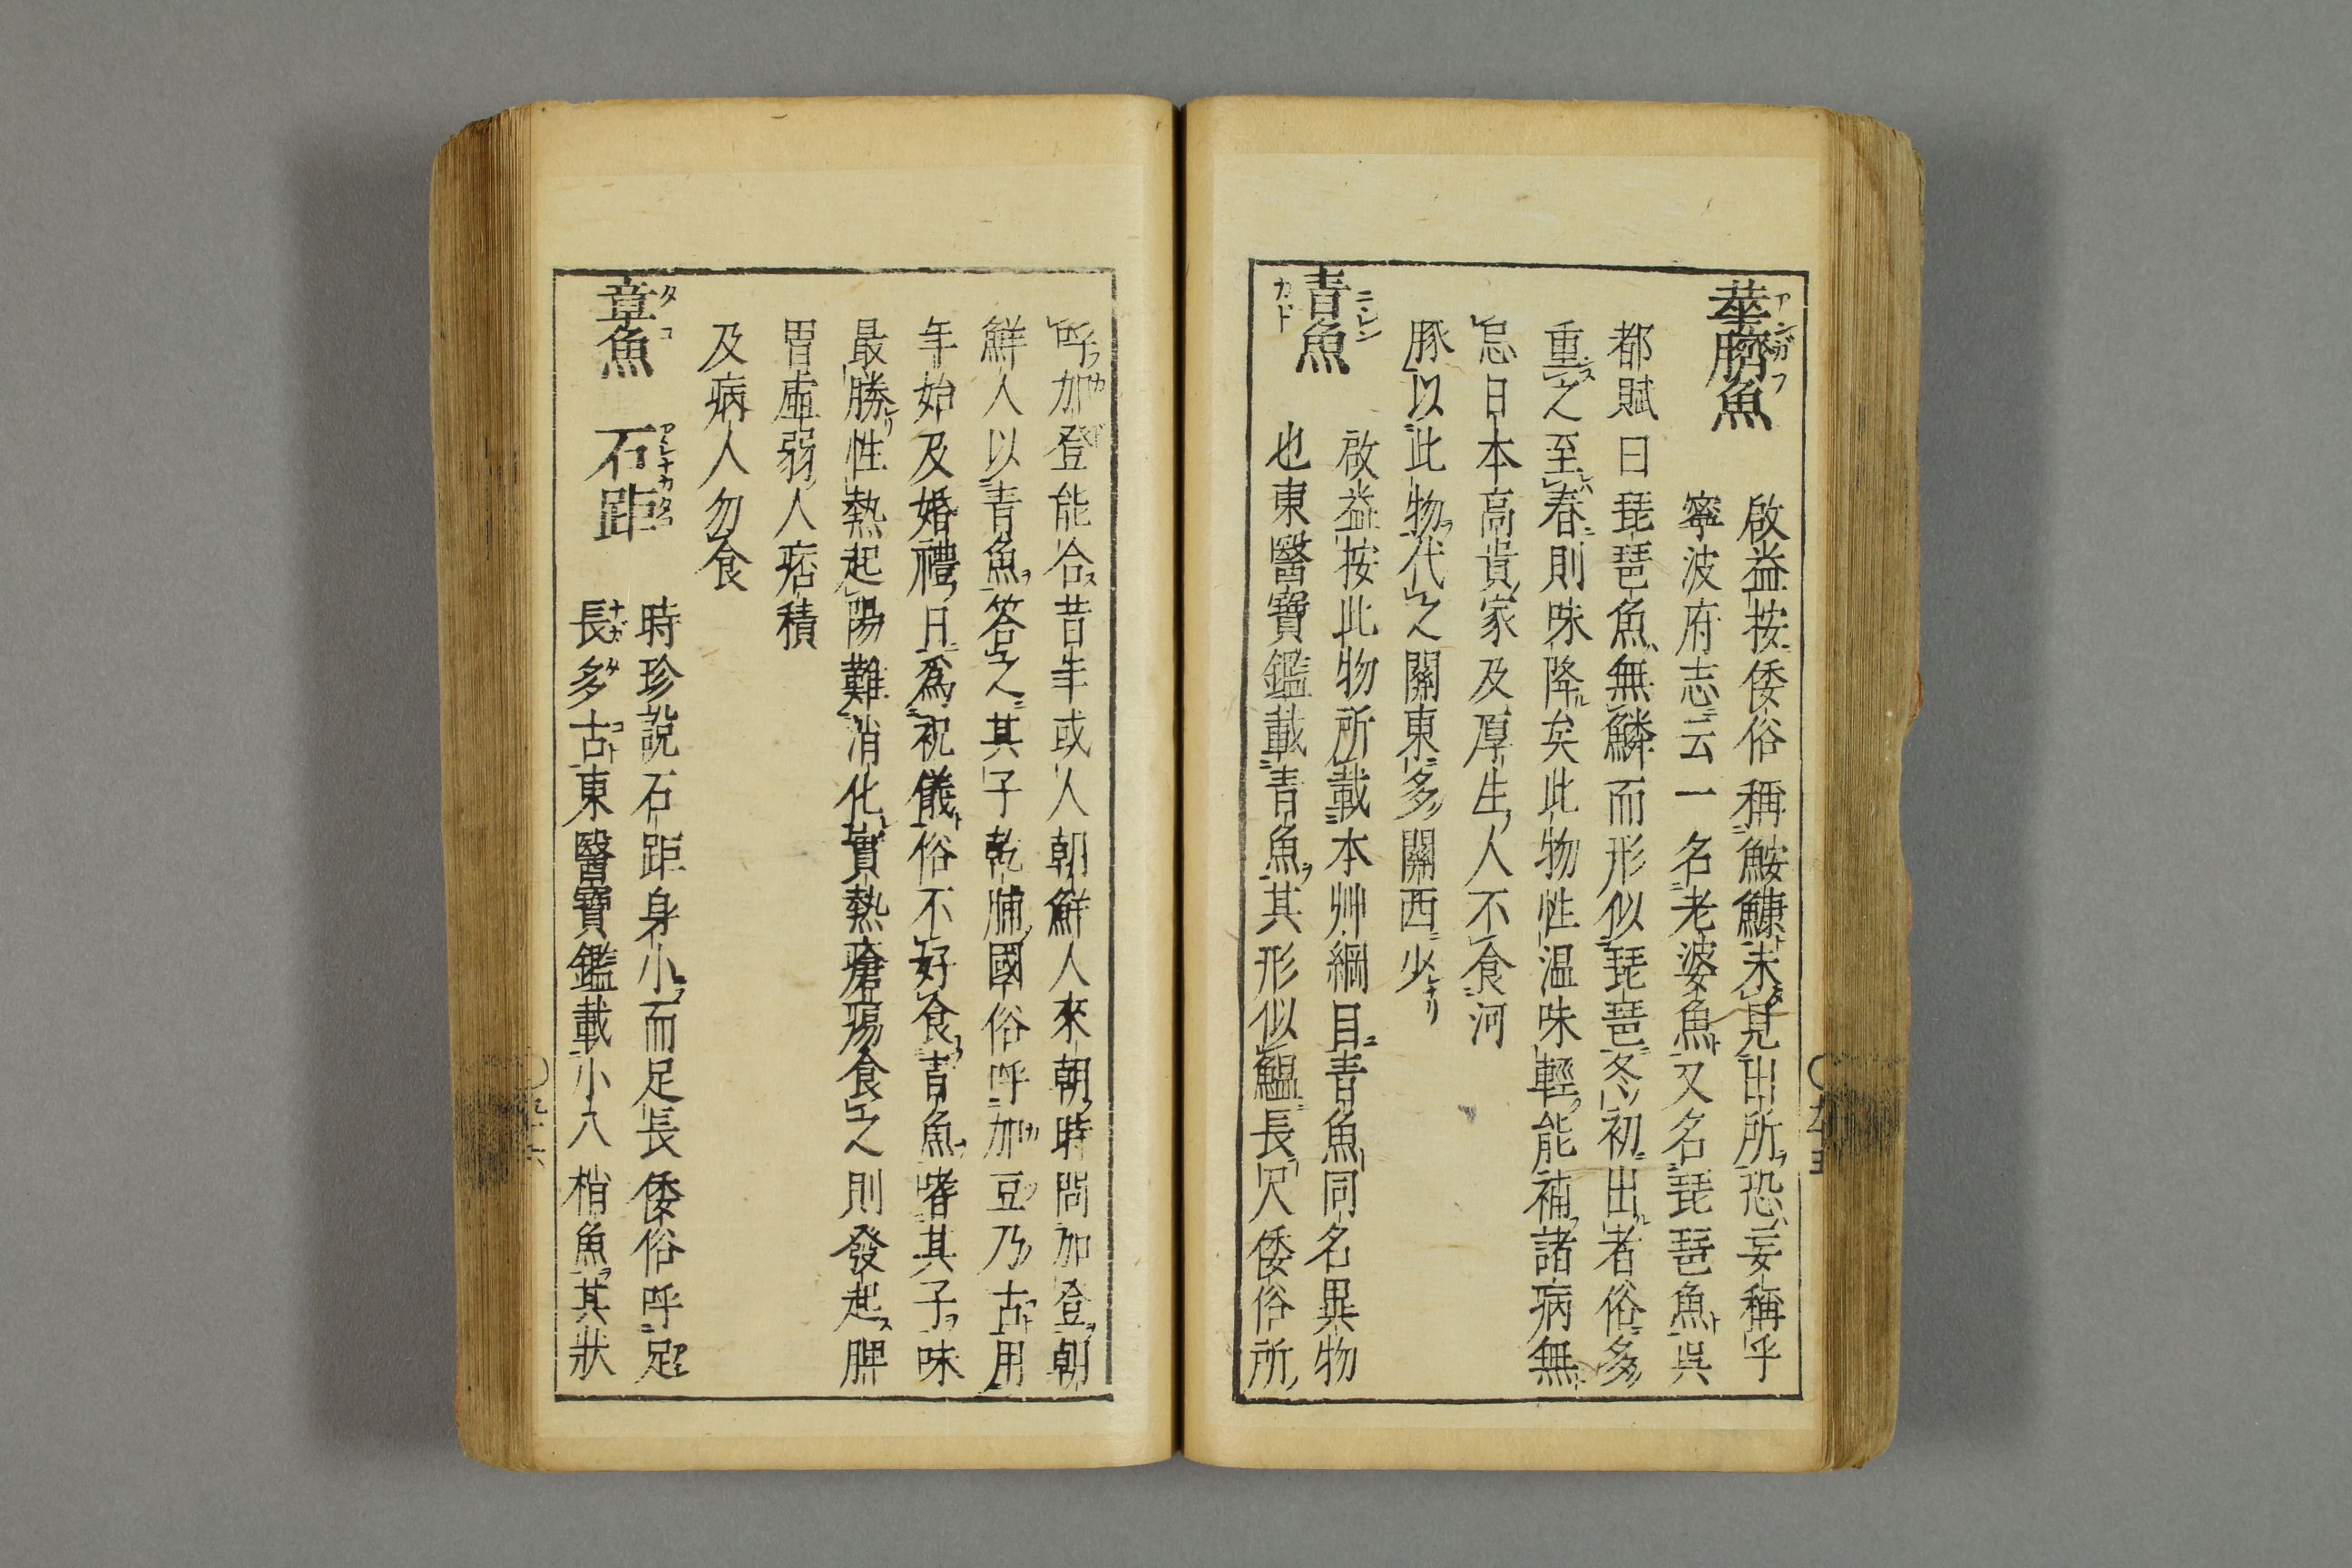 華臍魚
啟益按倭俗稱鮟鱇未見出所恐妄稱乎
寧波府志云一名老婆魚又名琵琶魚呉
都賦曰琵琶魚無鱗而形似琵琶冬初出者俗多
重之至春則味降矣此物性温味輕能補諸病無
忌日本高貴家及厚生人不食河
豚以此物代之關東多關西少ナリ
青魚 ニシン カド
啟益按此物所載本艸綱目青魚同名異物
也東醫寶鑑載青魚其形似鰮長尺倭俗所
呼加登能合昔年或人朝鮮人來朝時問加登朝
鮮人以青魚答之其子乾脯國俗呼加豆乃古用
年始及婚禮日為祝儀俗不好食青魚嗜其子味
最勝性熱起陽難消化實熱瘡瘍食之則發起脾
胃虛弱人痞積
及病人勿食
章魚 タコ 石距 アシナガタコ
時珍說石距身小而足長倭俗呼足
長多古東醫寶鑑載小八梢魚其狀